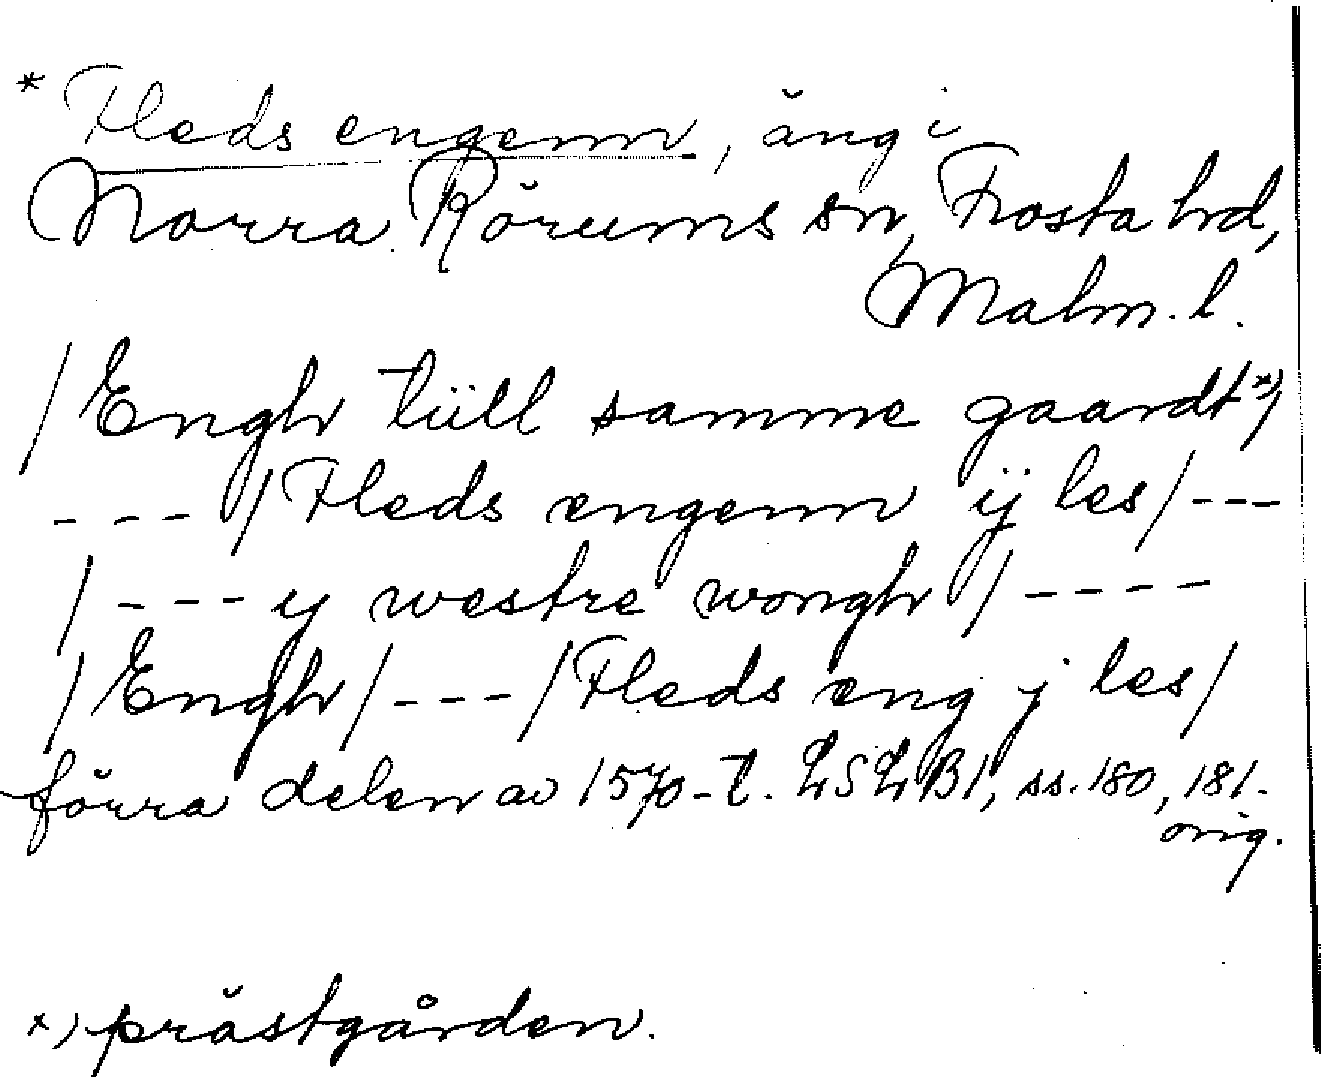 * Fleds engenn, äng i
Norra Rörums sn, Frosta hd,
Malm. l.
/ Engh tüll samme gaardt x)
--- / Fleds engenn ij les / ---
/ --- y westre wongh / ----
/ Engh / --- / Fleds eng j les /
förra delen av 1570-t. LSLB1, ss. 180, 181.
orig.
x) prästgården.